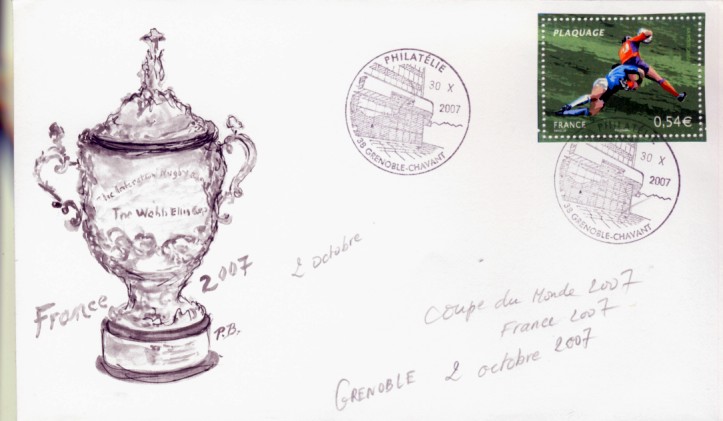 The International Rugby
The Webb Ellis Cup
France 2007
P.B.
2 octobre
PHILATÉLIE
30 X
2007
38 GRENOBLE-CHAVANT
PLAQUAGE
FRANCE
0,54€
PHILATÉLIE
30 X
2007
38 GRENOBLE-CHAVANT
Coupe du Monde 2007
France 2007
GRENOBLE 2 octobre 2007